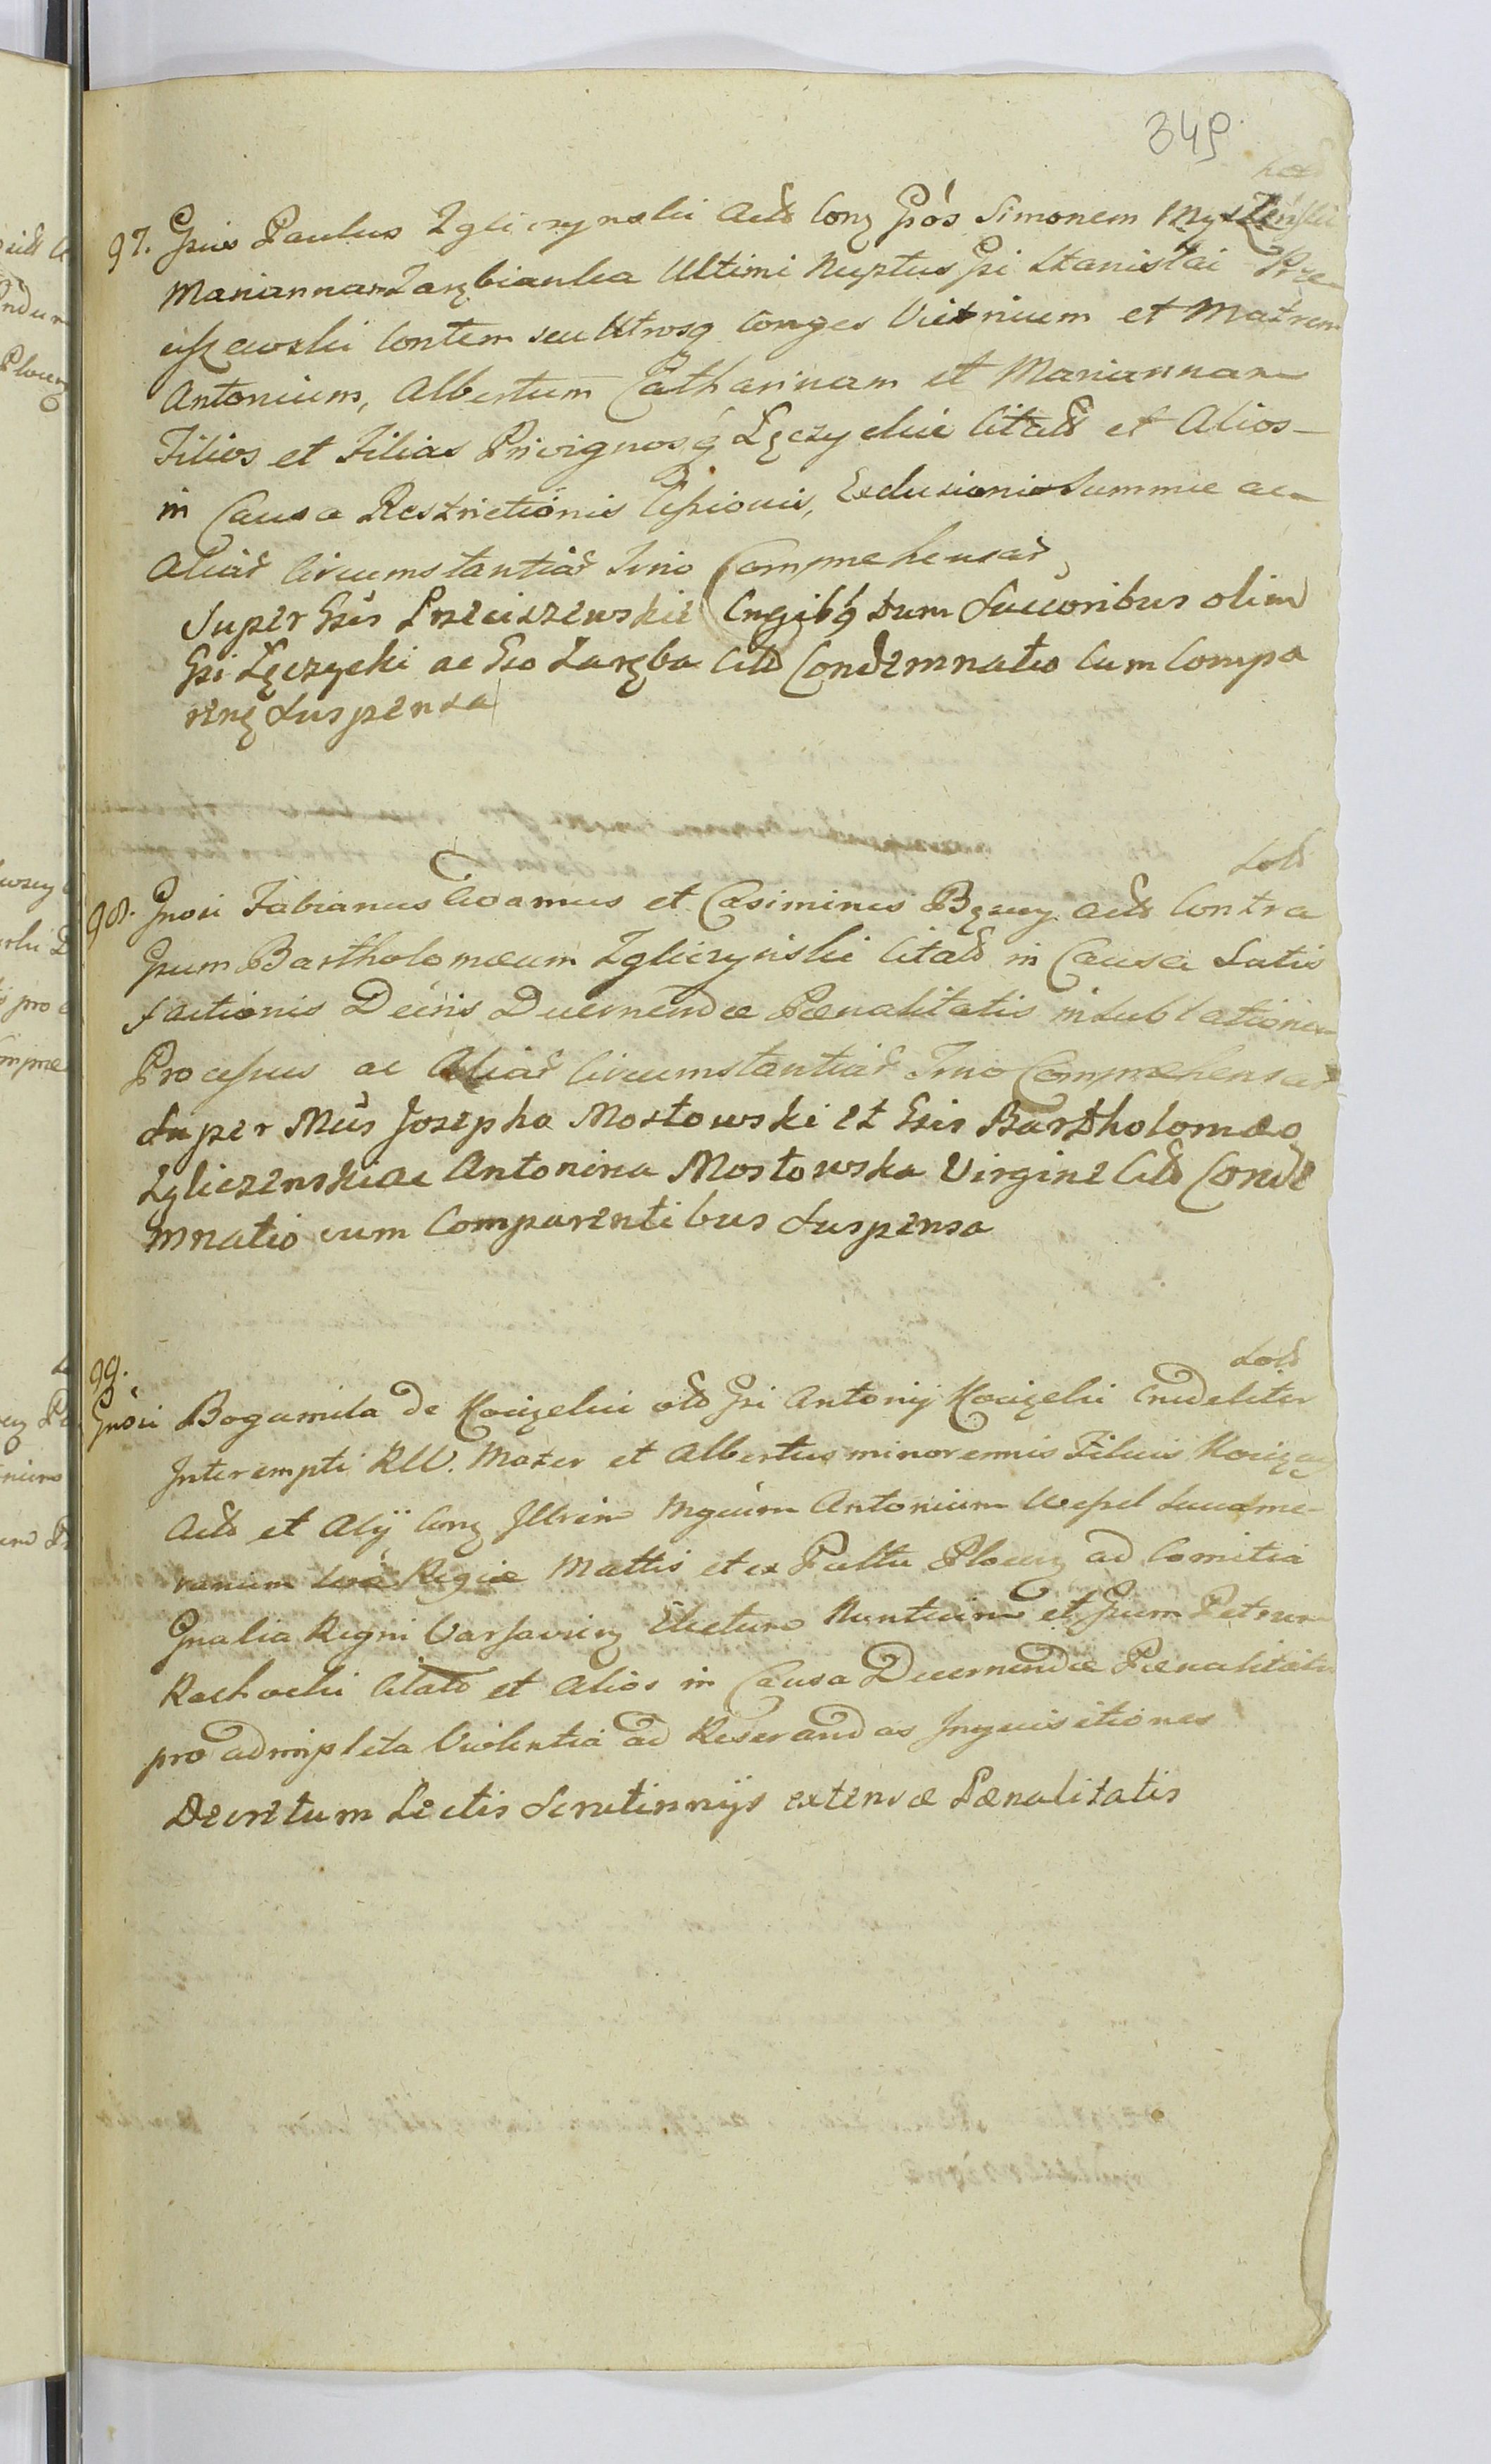 349
97. Gsus Paulus Zgliczynski Actd Conz Gsós Simonem
Mariannam Zarębianka Ultimi Nuptus Gsi Stanislai Prze-
ciszewski Contem seu Utrosq Conges Vitricum et Matrem
Antonium, Albertum Catharinam et Mariannam
Filios et Filias Privignosq Lęczyckie Citatd et Alios
in Causa Restrictionis Cessionis, Exclusionis Summæ ac
Aliar Circumstantiar Inio Comprehensar
Super Gsis Przeciszewskie Cngibq tum Succoribus olim
Gsi Lęczycki ac Gso Zaręba Citd Condemnatio Cum Compa
renz Suspensa
Sold
98. Gnosi Fabianus Adamus et Casimirus Actd Contra
Gsum Bartholomæum Zgliczynski Citatd in Causa Satis
factionis Decris Decernendæ Pænalitatis in Sublationem
Processus ac Aliar Circumstantiar Inio Comprehensar
Super Mcis Josepho Mostowski et Gsis Bartholomæo
Zgliczenski ac Antonina Mostowska Virgine Citd Conde
mnatio cum Comparentibus Suspensa
Sold
99.
Gnosi Bogumila de Kocięckie old Gsi Antonij Kocięcki Crudeliter
Interempti RW. Mater et Albertus minorennis Filius
Actd et Alij Conz Illrem Mgcum Antonium Wessel Succame-
rarium Regiæ Mattis et ex Paltu Plocenz ad Comitia
Gnalia Regni Varsavienz Electum Nuntium et Gsum Petrum
Rachocki Citatd et Alios in Causa Decernendæ Pænalitatis
pro adimpleta Violentia ad Reserandas Inquisitiones
Decretum Lectis Scrutinnijs extensæ Pænalitatis